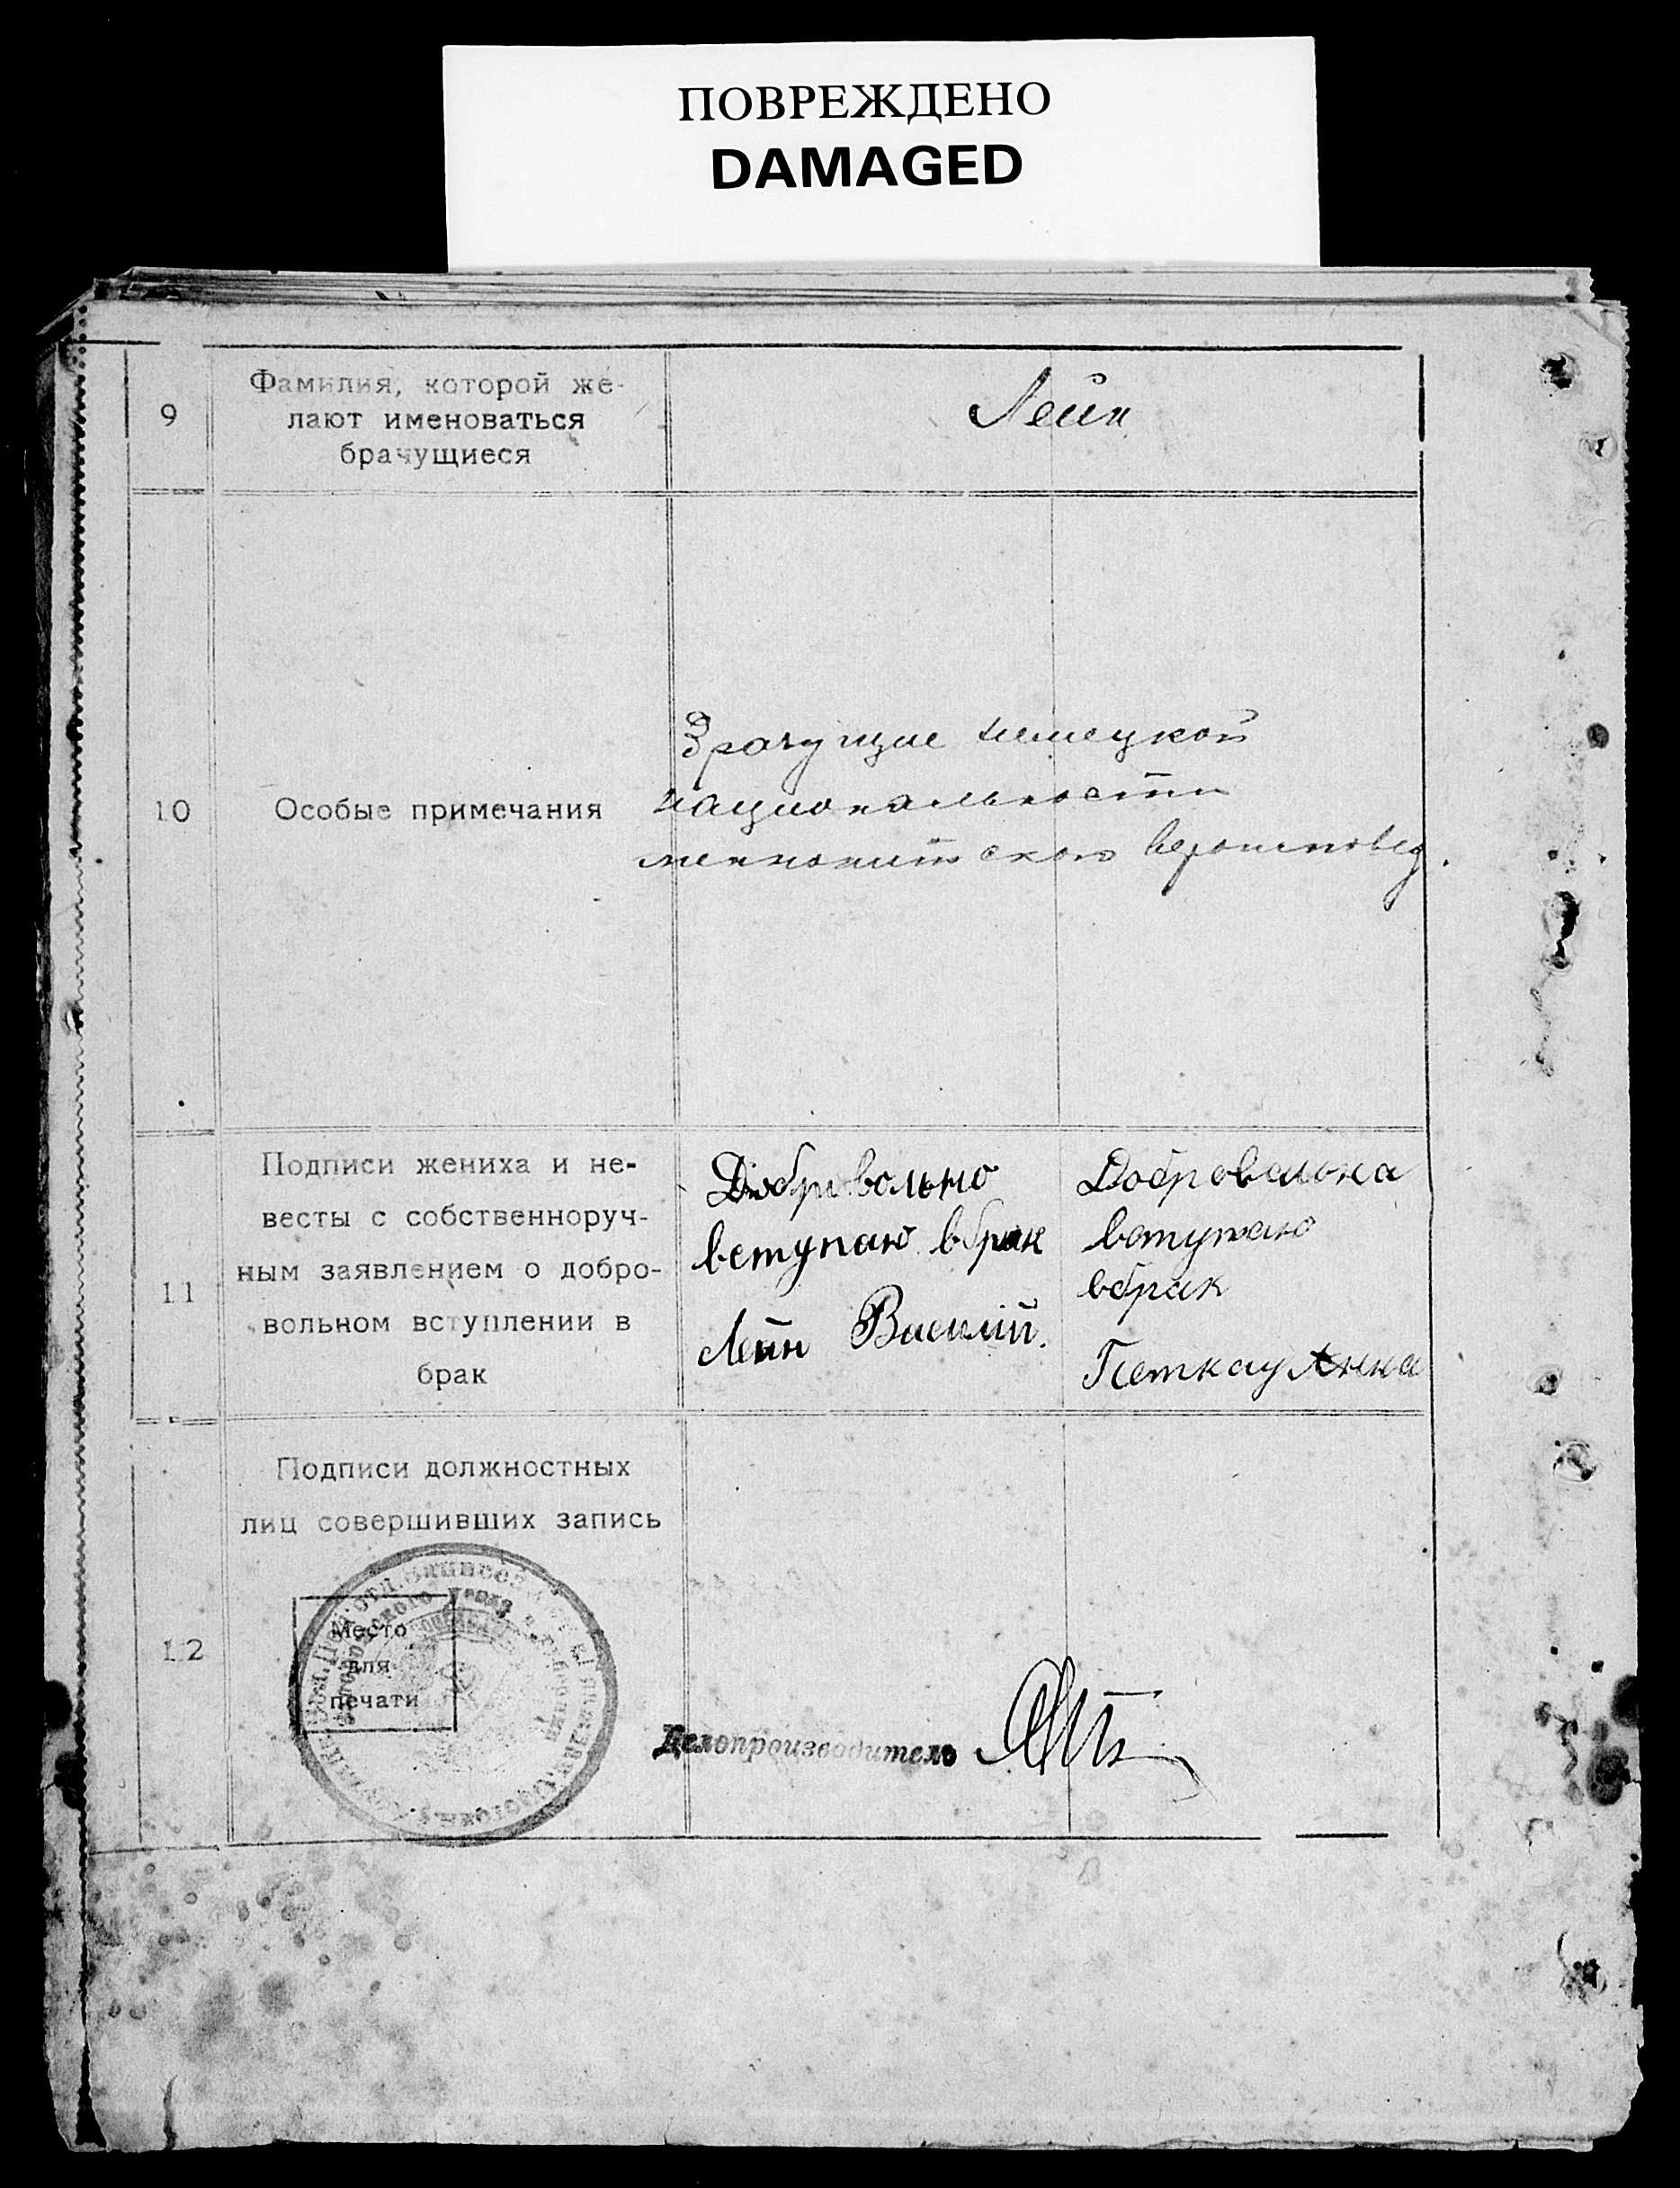 ПОВРЕЖДЕНО
DAMAGED
9
Фамилия, которой же-
лают именоваться
брачущиеся
Лейн
10
Особые примечания
Брачущие немецкой
национальности
меннонитской вероисповед.
11
Подписи жениха и не-
весты с собственноруч-
ным заявлением о добро-
вольном вступлении в
брак
Добровольно
вступаю в брак
Лейн Василий.
Добровольна
вступаю
вбрак
Петкау Анна
12
Подписи должностных
лиц совершивших запись
Место
для
печати
Делопроизводитель